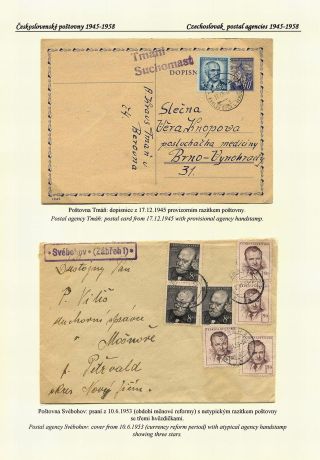 Československé poštovny 1945-1958
Czechoslovak postal agencies 1945-1958
Tmáň
Suchomast
DOPISN
Slečna
Věra Knopova
posluchačka medicíny
Brno-Vinohrady
31.
Poštovna Tmáň: dopisnice z 17.12.1945 provizorním razítkem poštovny.
Postal agency Tmáň: postal card from 17.12.1945 with provisional agency handstamp.
Svébohov (Zábřeh 1)
Důstojný pan
P. Viliš
duchovní správce
v Mošnově
p. Petřvald
okres Nový Jičín.
Poštovna Svébohov: psaní z 10.6.1953 (období měnové reformy) s netypickým razítkem poštovny
se třemi hvězdičkami.
Postal agency Svébohov: cover from 10.6.1953 (currency reform period) with atypical agency handstamp
showing three stars.